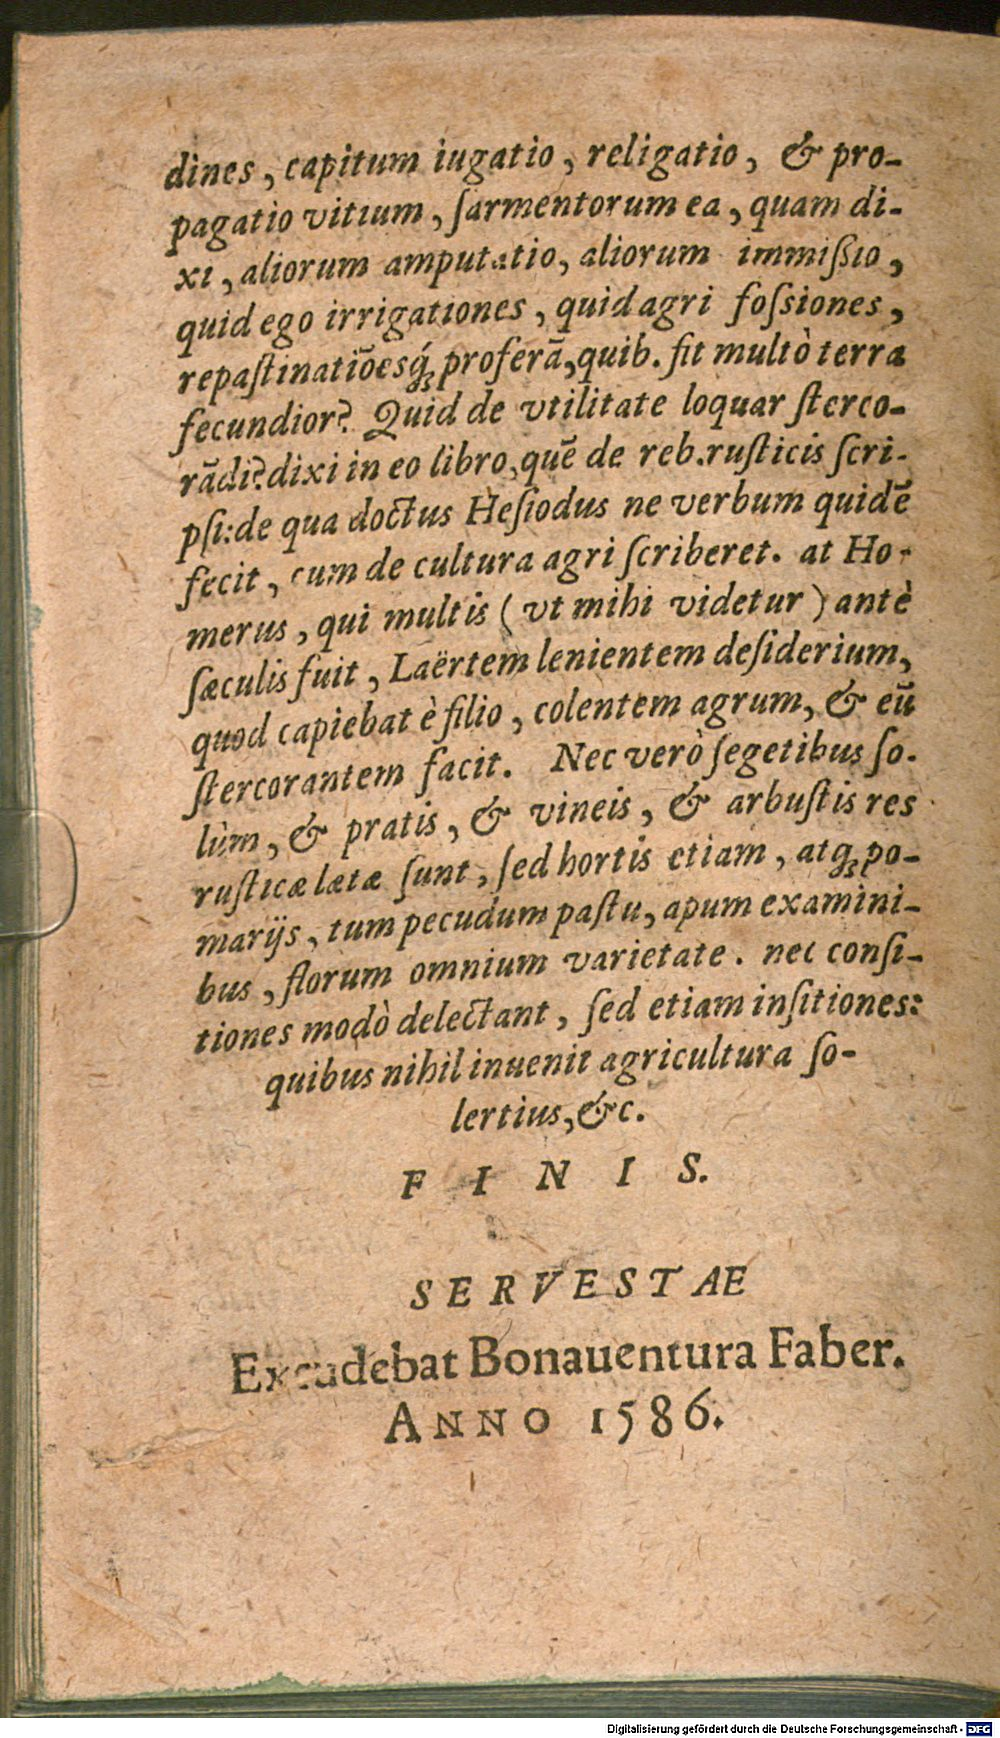 dines, capitum iugatio, religatio, & pro-
pagatio vitium, ſarmentorum ea, quam di-
xi, aliorum amputatio, aliorum immiſsio,
quid ego irrigationes, quid agri foſsiones,
repaſtinatiōesq́; proferā, quib. fit multò terra
fecundior? Quid de vtilitate loquar ſterco-
rādi? dixi in eo libro, quē de reb. ruſticis ſcri-
pſi: de qua doctus Heſiodus ne verbum quidē
fecit, cum de cultura agri ſcriberet. at Ho-
merus, qui multis (vt mihi videtur) antè
ſæculis fuit, Laërtem lenientem deſiderium,
quod capiebat è filio, colentem agrum, & eū
ſtercorantem facit. Nec verò ſegetibus ſo-
lùm, & pratis, & vineis, & arbuſtis res
ruſticæ lætæ ſunt, ſed hortis etiam, atq; po-
marijs, tum pecudum paſtu, apum examini-
bus, florum omnium varietate. nec conſi-
tiones modò delectant, ſed etiam inſitiones:
quibus nihil inuenit agricultura ſo-
lertius, &c.
FINIS.
SERVESTAE
Excudebat Bonauentura Faber.
ANNO 1586.
Digitalisierung gefördert durch die Deutsche Forschungsgemeinschaft - DFG